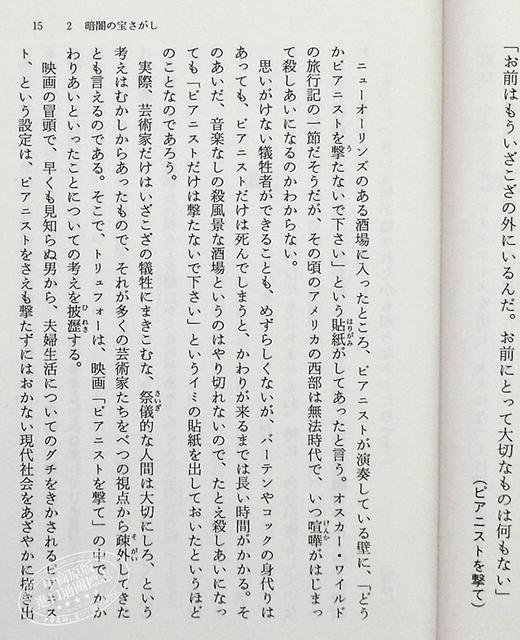 「お前はもういざこざの外にいるんだ。お前にとって大切なものは何もない」
(ピアニストを撃て)
15 2 暗闇の宝さがし
ニューオーリンズのある酒場に入ったところ、ピアニストが演奏している壁に、「どう
かピアニストを撃たないで下さい」という貼紙がしてあったと言う。オスカー・ワイルド
の旅行記の一節だそうだが、その頃のアメリカの西部は無法時代で、いつ喧嘩がはじまっ
て殺しあいになるのかわからない。
思いがけない犠牲者ができることも、めずらしくないが、バーテンやコックの身代りは
あっても、ピアニストだけは死んでしまうと、かわりが来るまでは長い時間がかかる。そ
のあいだ、音楽なしの殺風景な酒場というのはやり切れないので、たとえ殺しあいになっ
ても「ピアニストだけは撃たないで下さい」というイミの貼紙を出しておいたというほど
のことなのであろう。
実際、芸術家だけはいざこざの犠牲にまきこむな、祭儀的な人間は大切にしろ、という
考えはむかしからあったもので、それが多くの芸術家たちをべつの視点から疎外してきた
とも言えるのである。そこで、トリュフォーは、映画「ピアニストを撃て」の中で、かか
わりあいといったことについての考えを披瀝する。
映画の冒頭で、早くも見知らぬ男から、夫婦生活についてのグチをきかされるピアニス
ト、という設定は、ピアニストをさえも撃たずにはおかない現代社会をあざやかに描き出